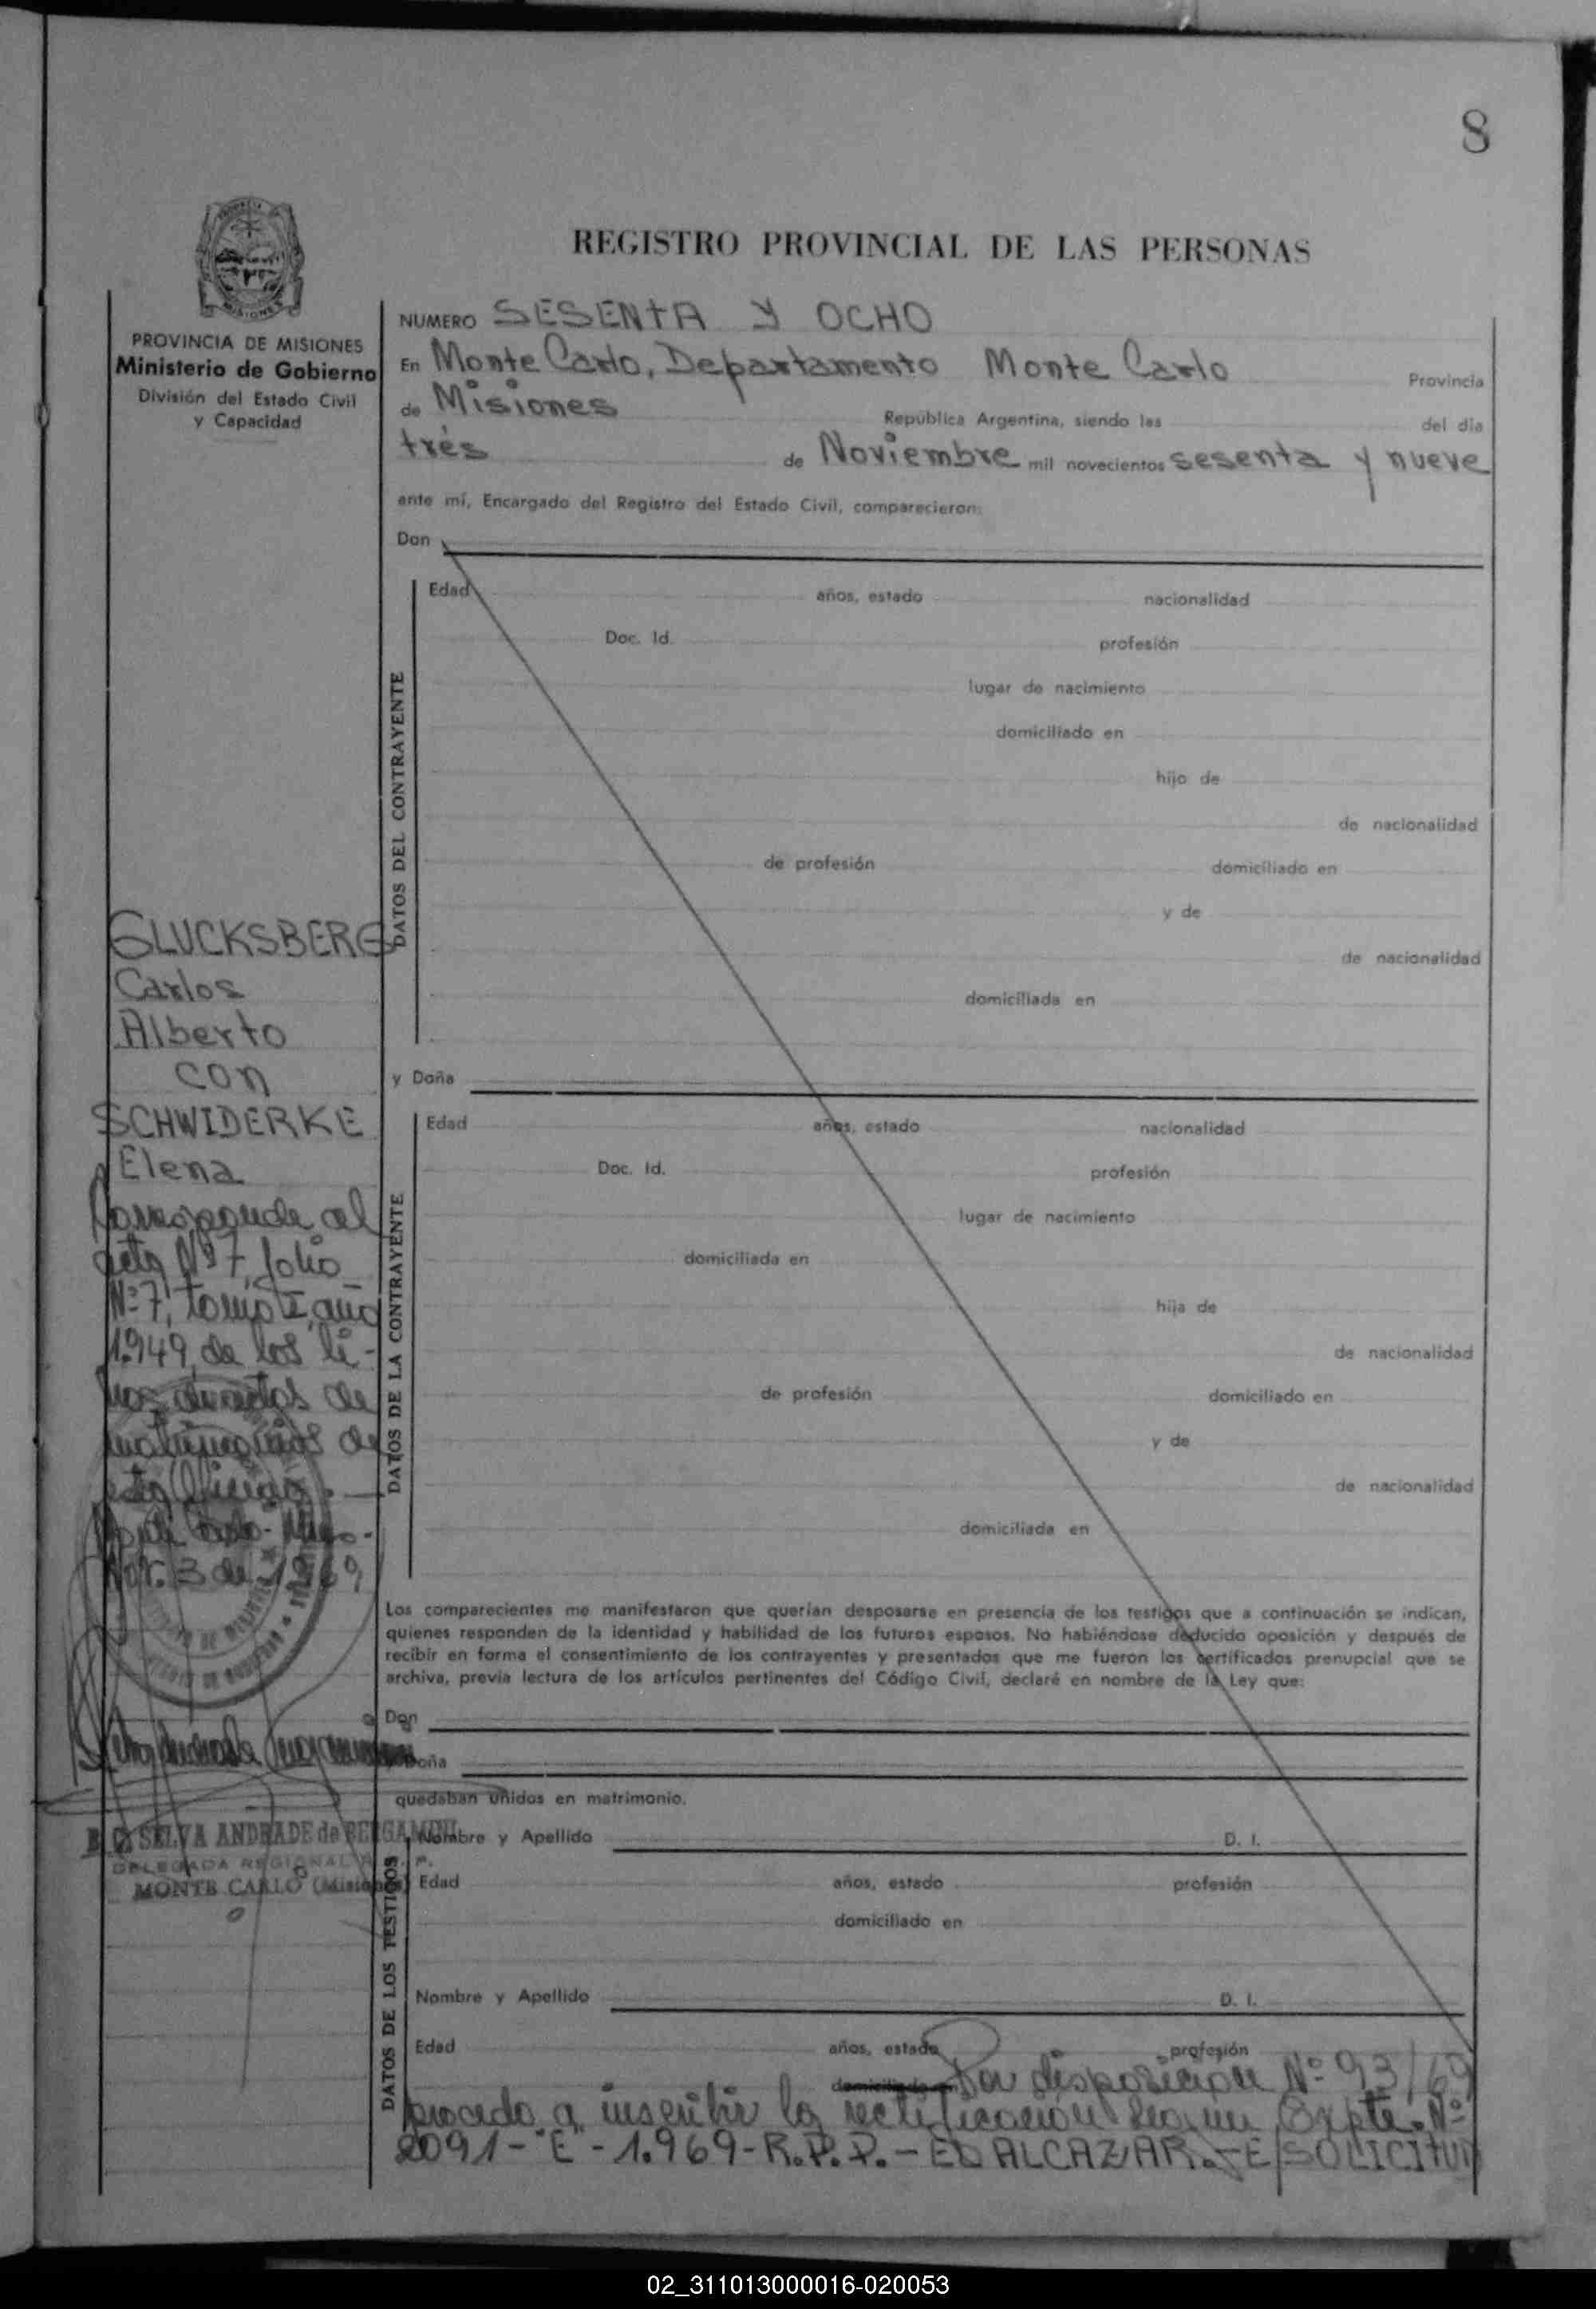 8
REGISTRO PROVINCIAL DE LAS PERSONAS
PROVINCIA DE MISIONES
Ministerio de Gobierno
División del Estado Civil
y Capacidad
NUMERO SESENTA Y OCHO
En Monte Carlo, Departamento Monte Carlo Provincia
de Misiones República Argentina, siendo las del día
tres de Noviembre mil novecientos sesenta y nueve
ante mí, Encargado del Registro del Estado Civil, comparecieron:
Don
DATOS DEL CONTRAYENTE
Edad años, estado nacionalidad
Doc. Id. profesión
lugar de nacimiento
domiciliado en
hijo de
de nacionalidad
de profesión domiciliado en
y de
de nacionalidad
domiciliada en
GLUCKSBERG
Carlos
Alberto
con
SCHWIDERKE
Elena
Corresponde al
acta Nº 7, folio
Nº 7, tomo I, año
1.949, de los li-
bros de actas de
matrimonios de
esta Oficina.
Monte Carlo-
Nov. 3 de 1969
y Doña
DATOS DE LA CONTRAYENTE
Edad años, estado nacionalidad
Doc. Id. profesión
lugar de nacimiento
domiciliada en
hija de
de nacionalidad
de profesión domiciliado en
y de
de nacionalidad
domiciliada en
Los comparecientes me manifestaron que querían desposarse en presencia de los testigos que a continuación se indican,
quienes responden de la identidad y habilidad de los futuros esposos. No habiéndose deducido oposición y después de
recibir en forma el consentimiento de los contrayentes y presentados que me fueron los certificados prenupcial que se
archiva, previa lectura de los artículos pertinentes del Código Civil, declaré en nombre de la Ley que:
Don
Doña
quedaban unidos en matrimonio.
SELVA ANDRADE de BERGAMINI
DELEGADA REGIONAL
MONTE CARLO (Misiones)
DATOS DE LOS TESTIGOS
Nombre y Apellido D. I.
Edad años, estado profesión
domiciliado en
Nombre y Apellido D. I.
Edad años, estado profesión
domiciliado en Por disposición Nº 93/69
procedo a inscribir la rectificación según Expte. Nº
2091-"E"-1.969-R.P.P.-ELDALCAZAR.-E/SOLICITUD
02_311013000016-020053